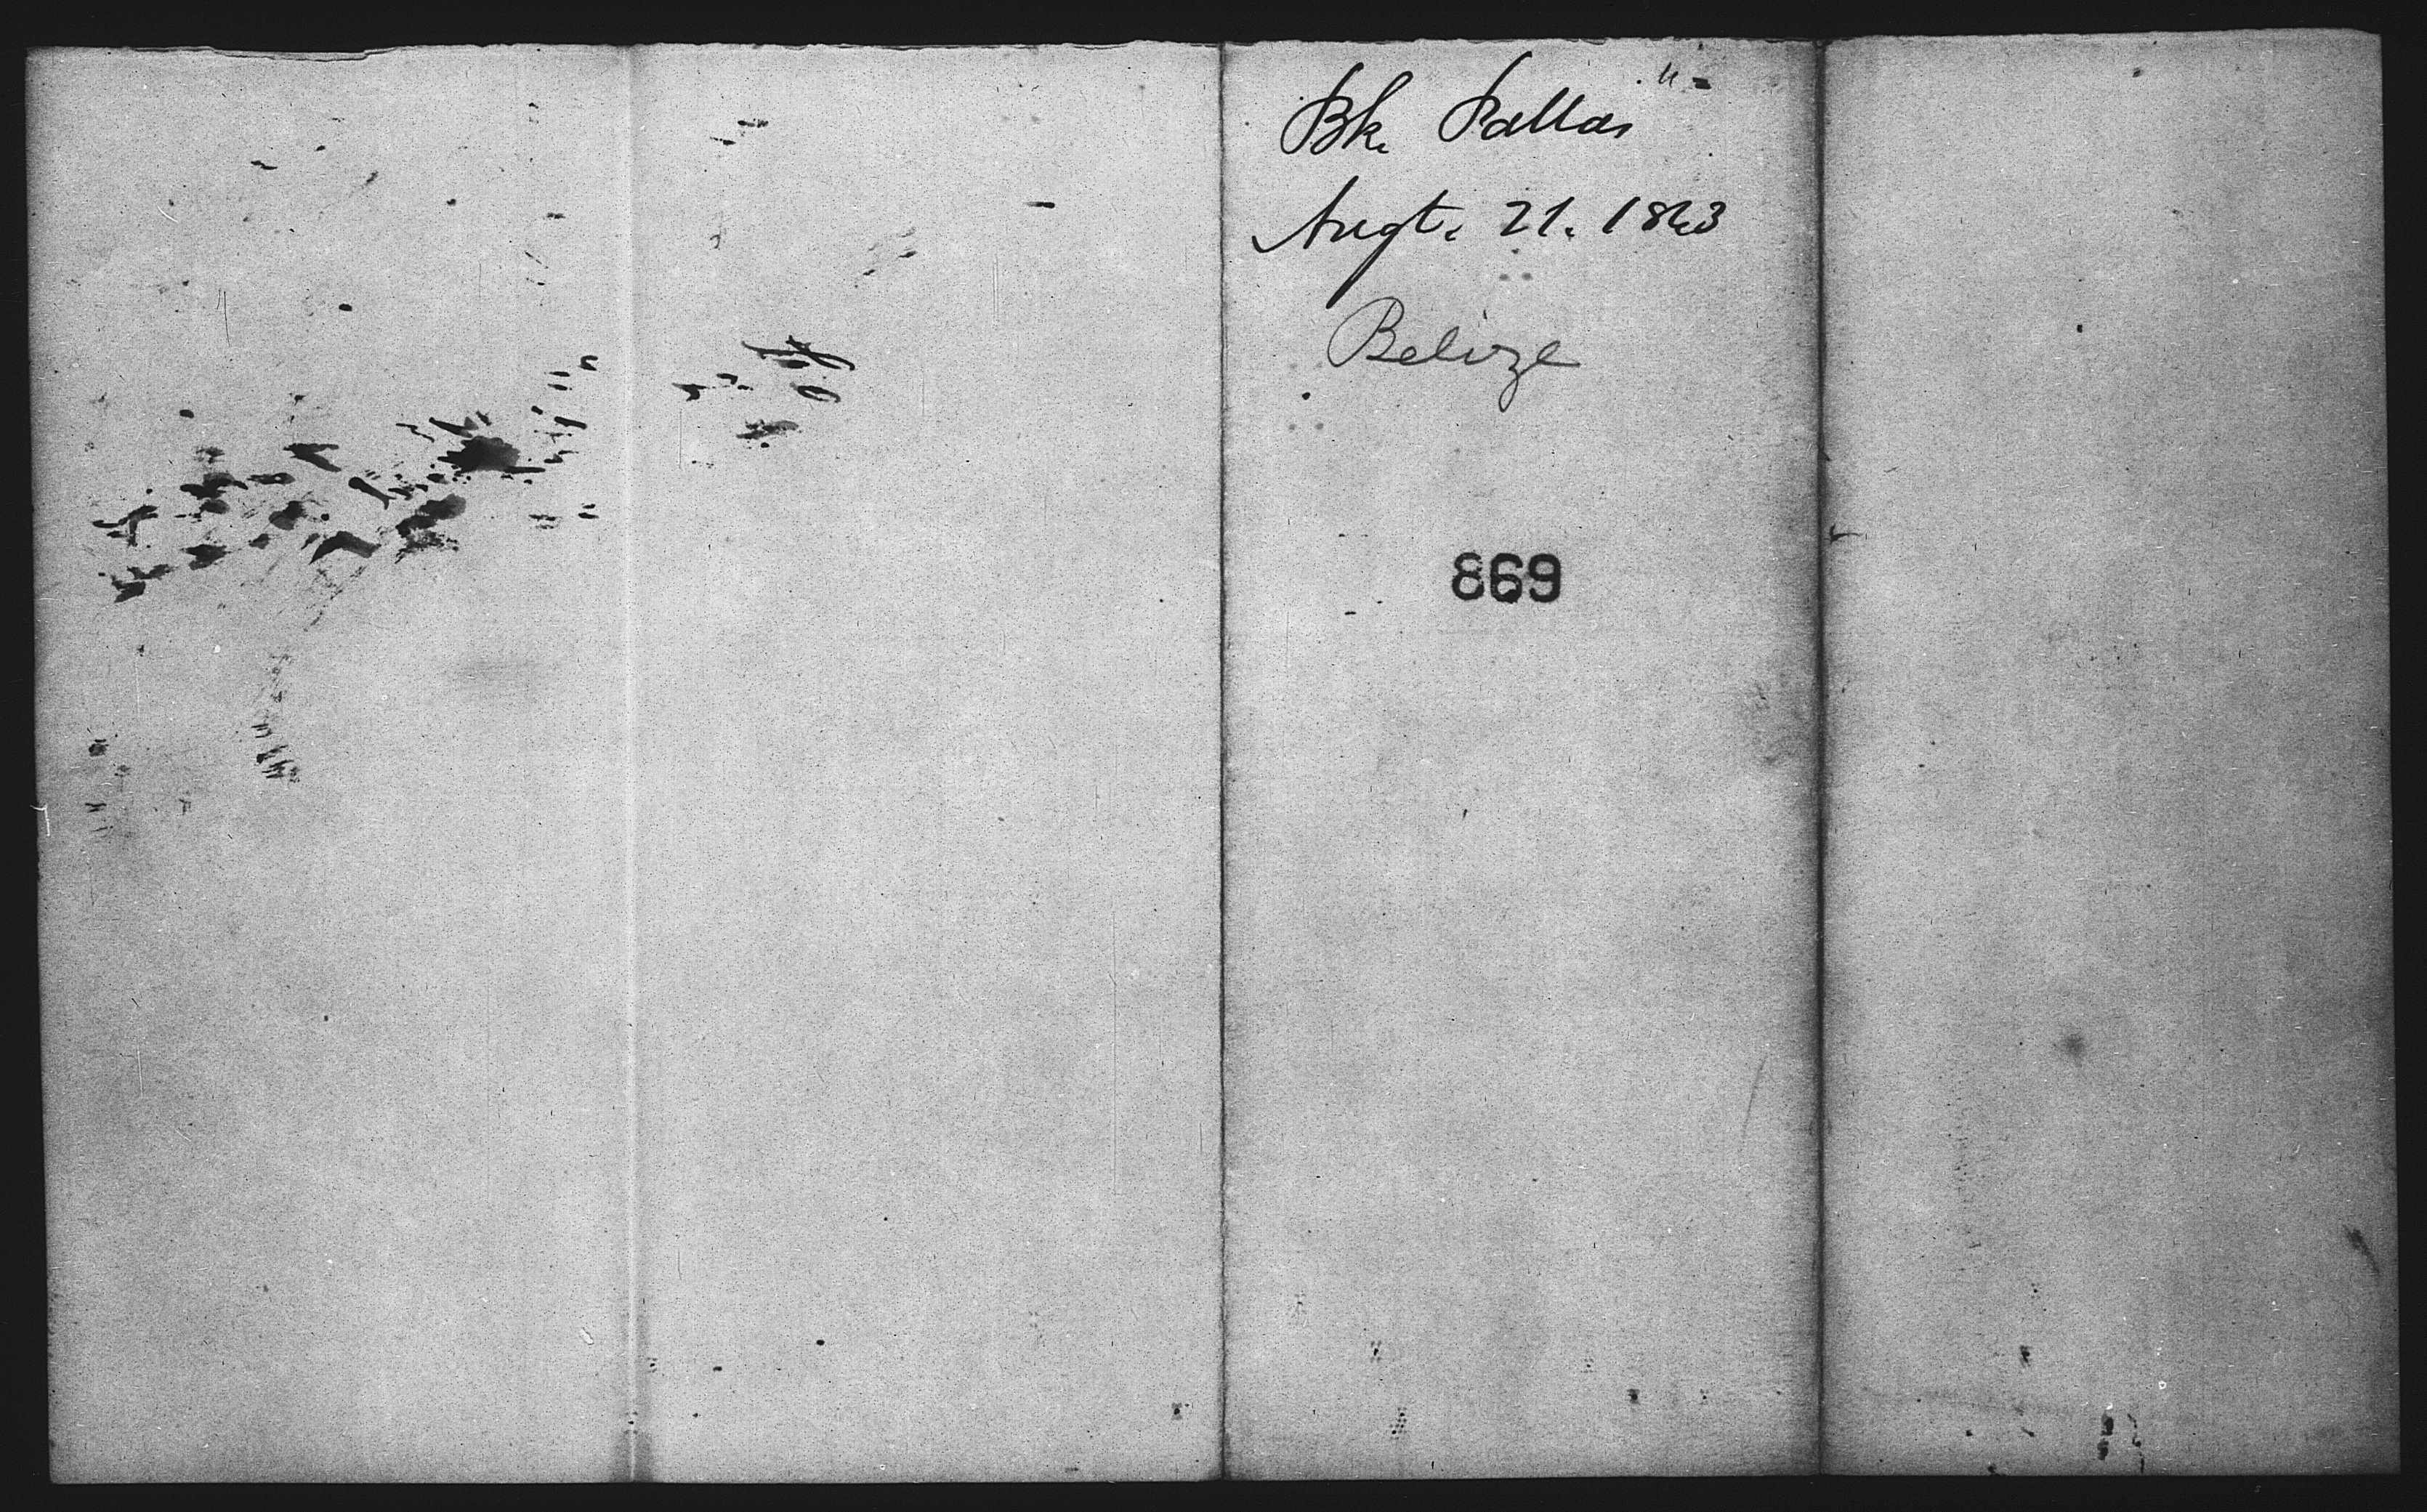 Bk. Pallas
Augt. 21. 1863
Belize
869